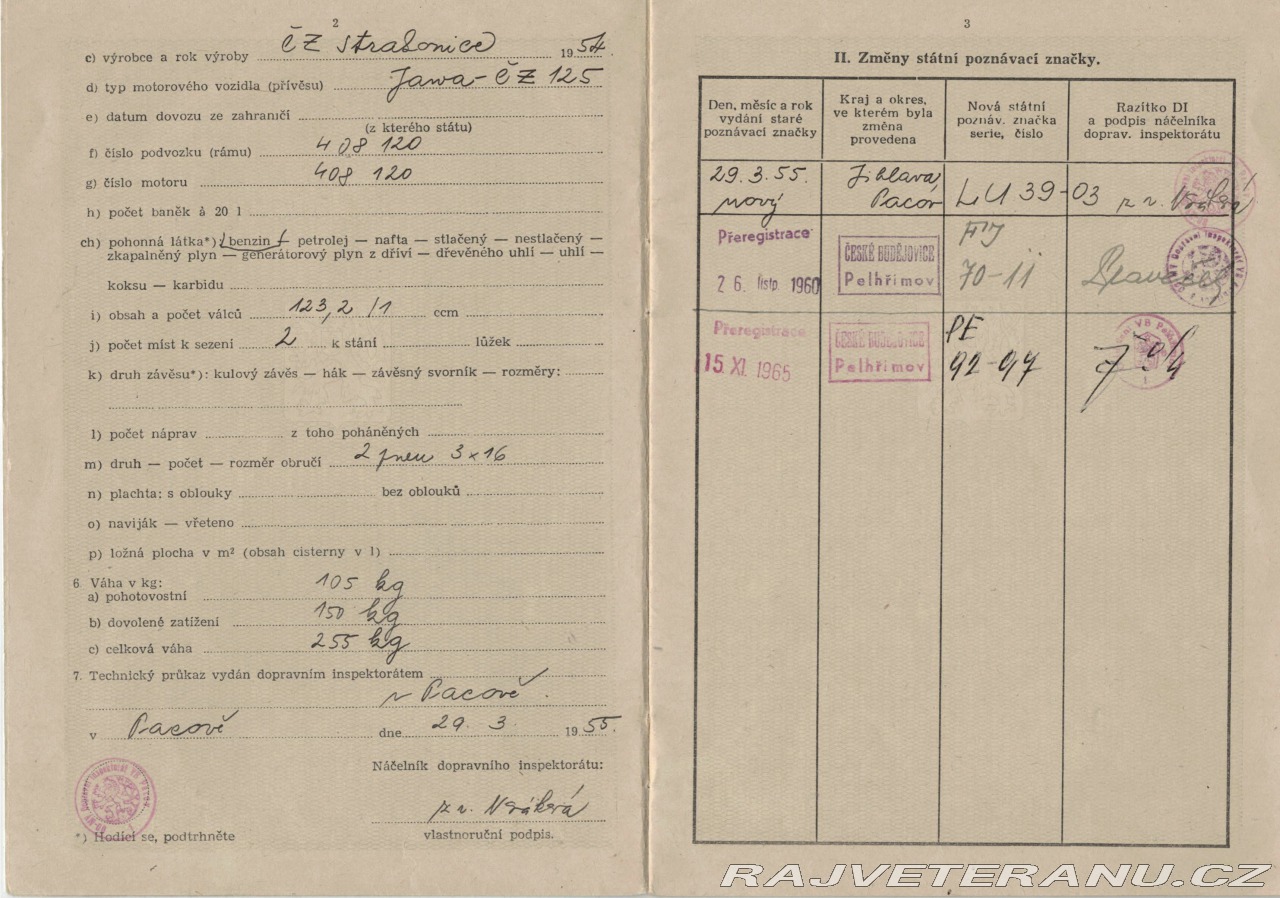 2
c) výrobce a rok výroby ČZ Strakonice 1954.
d) typ motorového vozidla (přívěsu) Jawa-ČZ 125
e) datum dovozu ze zahraničí
(z kterého státu)
f) číslo podvozku (rámu) 408 120
g) číslo motoru 408 120
h) počet baněk à 20 l
ch) pohonná látka*) benzin — petrolej — nafta — stlačený — nestlačený —
zkapalněný plyn — generátorový plyn z dříví — dřevěného uhlí — uhlí —
koksu — karbidu
i) obsah a počet válců 123,2 /1 ccm
j) počet míst k sezení 2 k stání lůžek
k) druh závěsu*): kulový závěs — hák — závěsný svorník — rozměry:
l) počet náprav z toho poháněných
m) druh — počet — rozměr obručí 2 pneu 3×16
n) plachta: s oblouky bez oblouků
o) naviják — vřeteno
p) ložná plocha v m² (obsah cisterny v l)
6. Váha v kg:
a) pohotovostní 105 kg
b) dovolené zatížení 150 kg
c) celková váha 255 kg
7. Technický průkaz vydán dopravním inspektorátem
v Pacově.
v Pacově dne 29. 3. 1955.
Náčelník dopravního inspektorátu:
z v.
vlastnoruční podpis.
*) Hodící se, podtrhněte
3
II. Změny státní poznávací značky.
Den, měsíc a rok vydání staré poznávací značky
Kraj a okres, ve kterém byla změna provedena
Nová státní poznáv. značka serie, číslo
Razítko DI a podpis náčelníka doprav. inspektorátu
29. 3. 55. Jihlava LU 39-03 z v.
nový Pacov
Přeregistrace ČESKÉ BUDĚJOVICE FJ
26. listp. 1960 Pelhřimov 70-11
Přeregistrace ČESKÉ BUDĚJOVICE PE
15. XI. 1965 Pelhřimov 92-97
RAJVETERANU.CZ